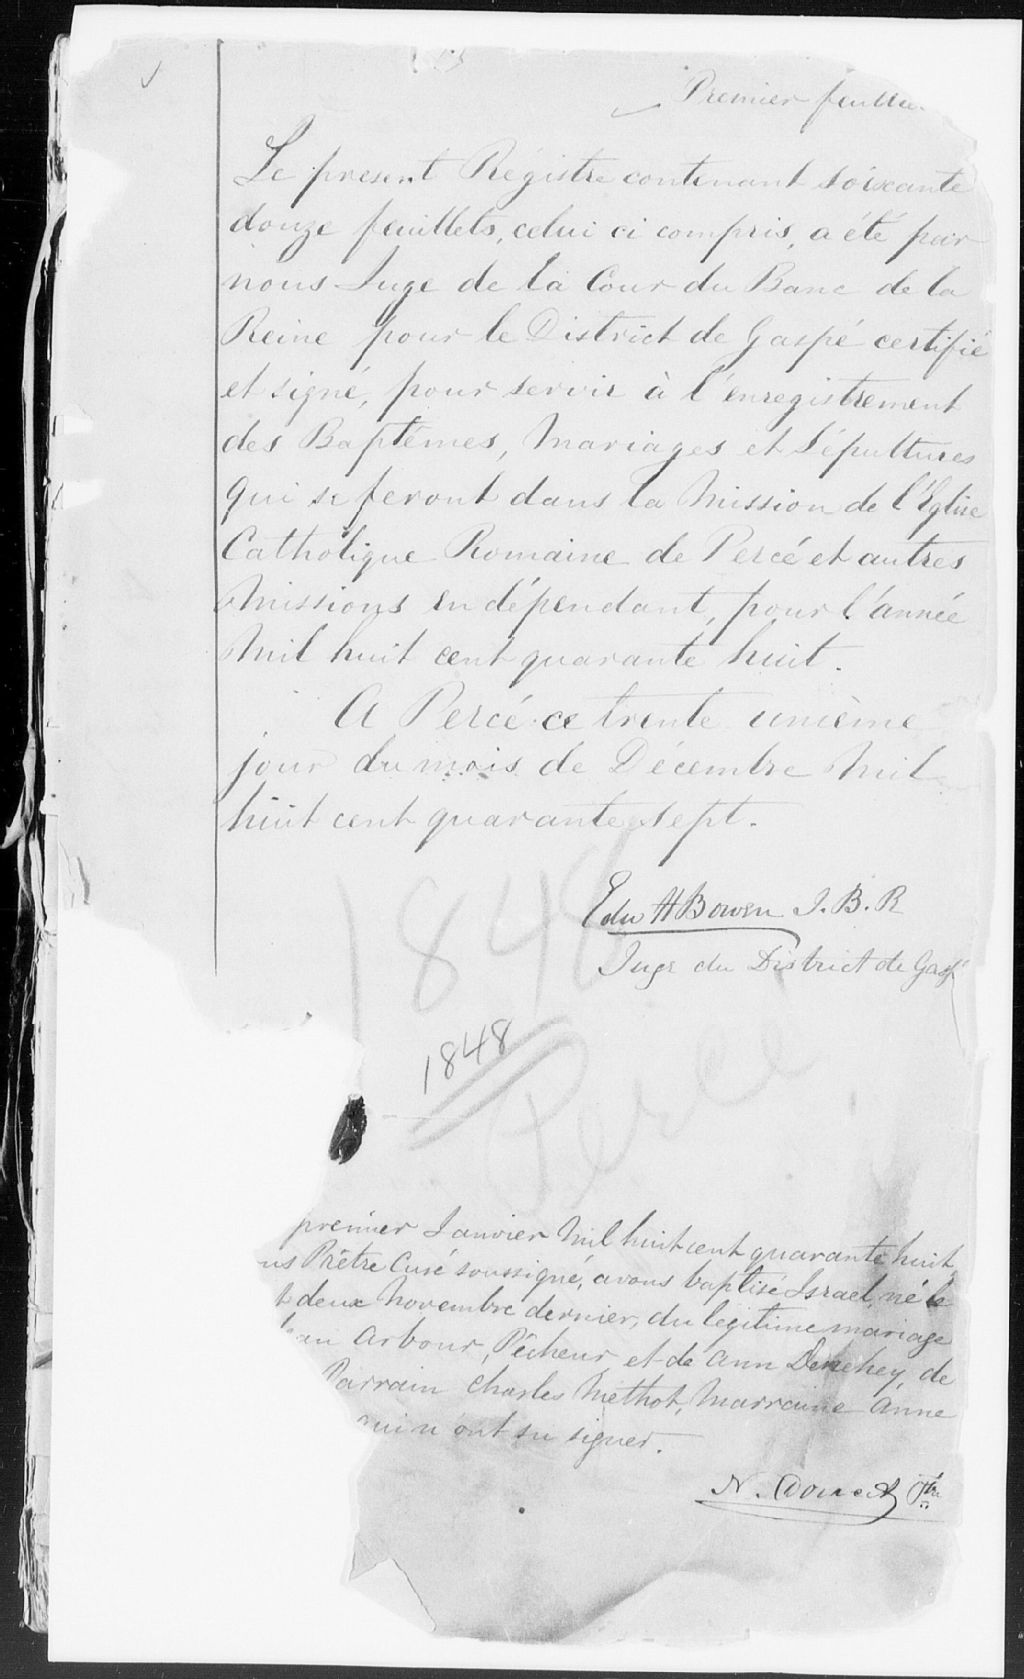 Premier feuillet
Le present Régistre contenant soixante
douze feuillets, celui ci compris, a été par
nous Juge de la Cour du Banc de la
Reine pour le District de Gaspé certifié
et signé, pour servir à l'enregistrement
des Baptêmes, Mariages et Sépultures
qui se feront dans la Mission de l'Eglise
Catholique Romaine de Percé et autres
Missions en dépendant, pour l'année
Mil huit cent quarante huit.
A Percé ce trente unième
jour du mois de Décembre Mil
huit cent quarante sept.
Edw H Bowen J. B. R
Juge du District de Gaspé
1848
1848
Percé
premier Janvier Mil huit cent quarante huit,
us Prêtre Curé soussigné, avons baptisé Israel, né le
t deux Novembre dernier, du légitime mariage
an Arbour, Pêcheur, et de Ann Denehey, de
Parrain Charles Methot, Marraine Anne
qui n'ont su signer.
N. Doucet Ptre